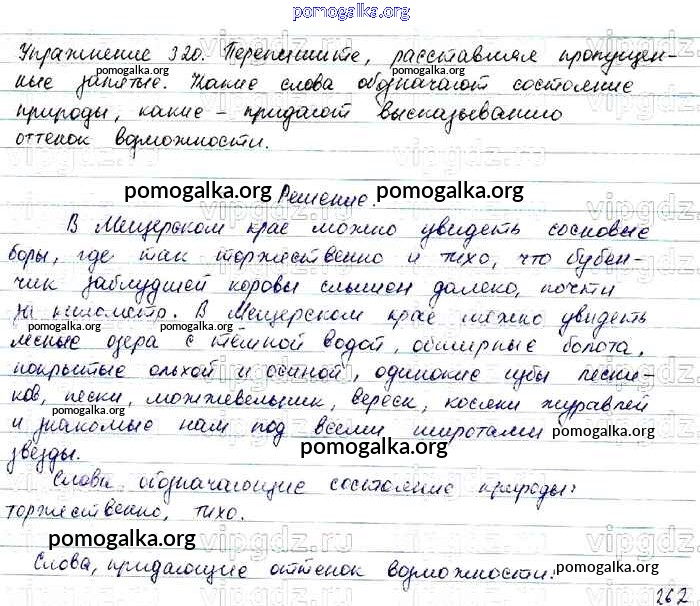 pomogalka.org
Упражнение 320. Перепишите, расставляя пропущен-
ные запятые. Какие слова обозначают состояние
pomogalka.org pomogalka.org
природы, какие – придают высказыванию
pomogalka.org
оттенок возможности.
pomogalka.org Решение. pomogalka.org
В Мещерском крае можно увидеть сосновые
боры, где так торжественно и тихо, что бубен-
чик заблудшей коровы слышен далеко, почти
pomogalka.org
за километр. В Мещерском крае можно увидеть
pomogalka.org pomogalka.org
лесные озера с тёмной водой, обширные болота,
покрытые ольхой и осиной, одинокие избы лесни-
pomogalka.org
ков, пески, можжевельник, вереск, косяки журавлей
pomogalka.org
и знакомые нам под всеми широтами
pomogalka.org pomogalka.org
звёзды.
Слова обозначающие состояние природы:
торжественно, тихо.
pomogalka.org
Слова, придающие оттенок возможности:
pomogalka.org pomogalka.org
262